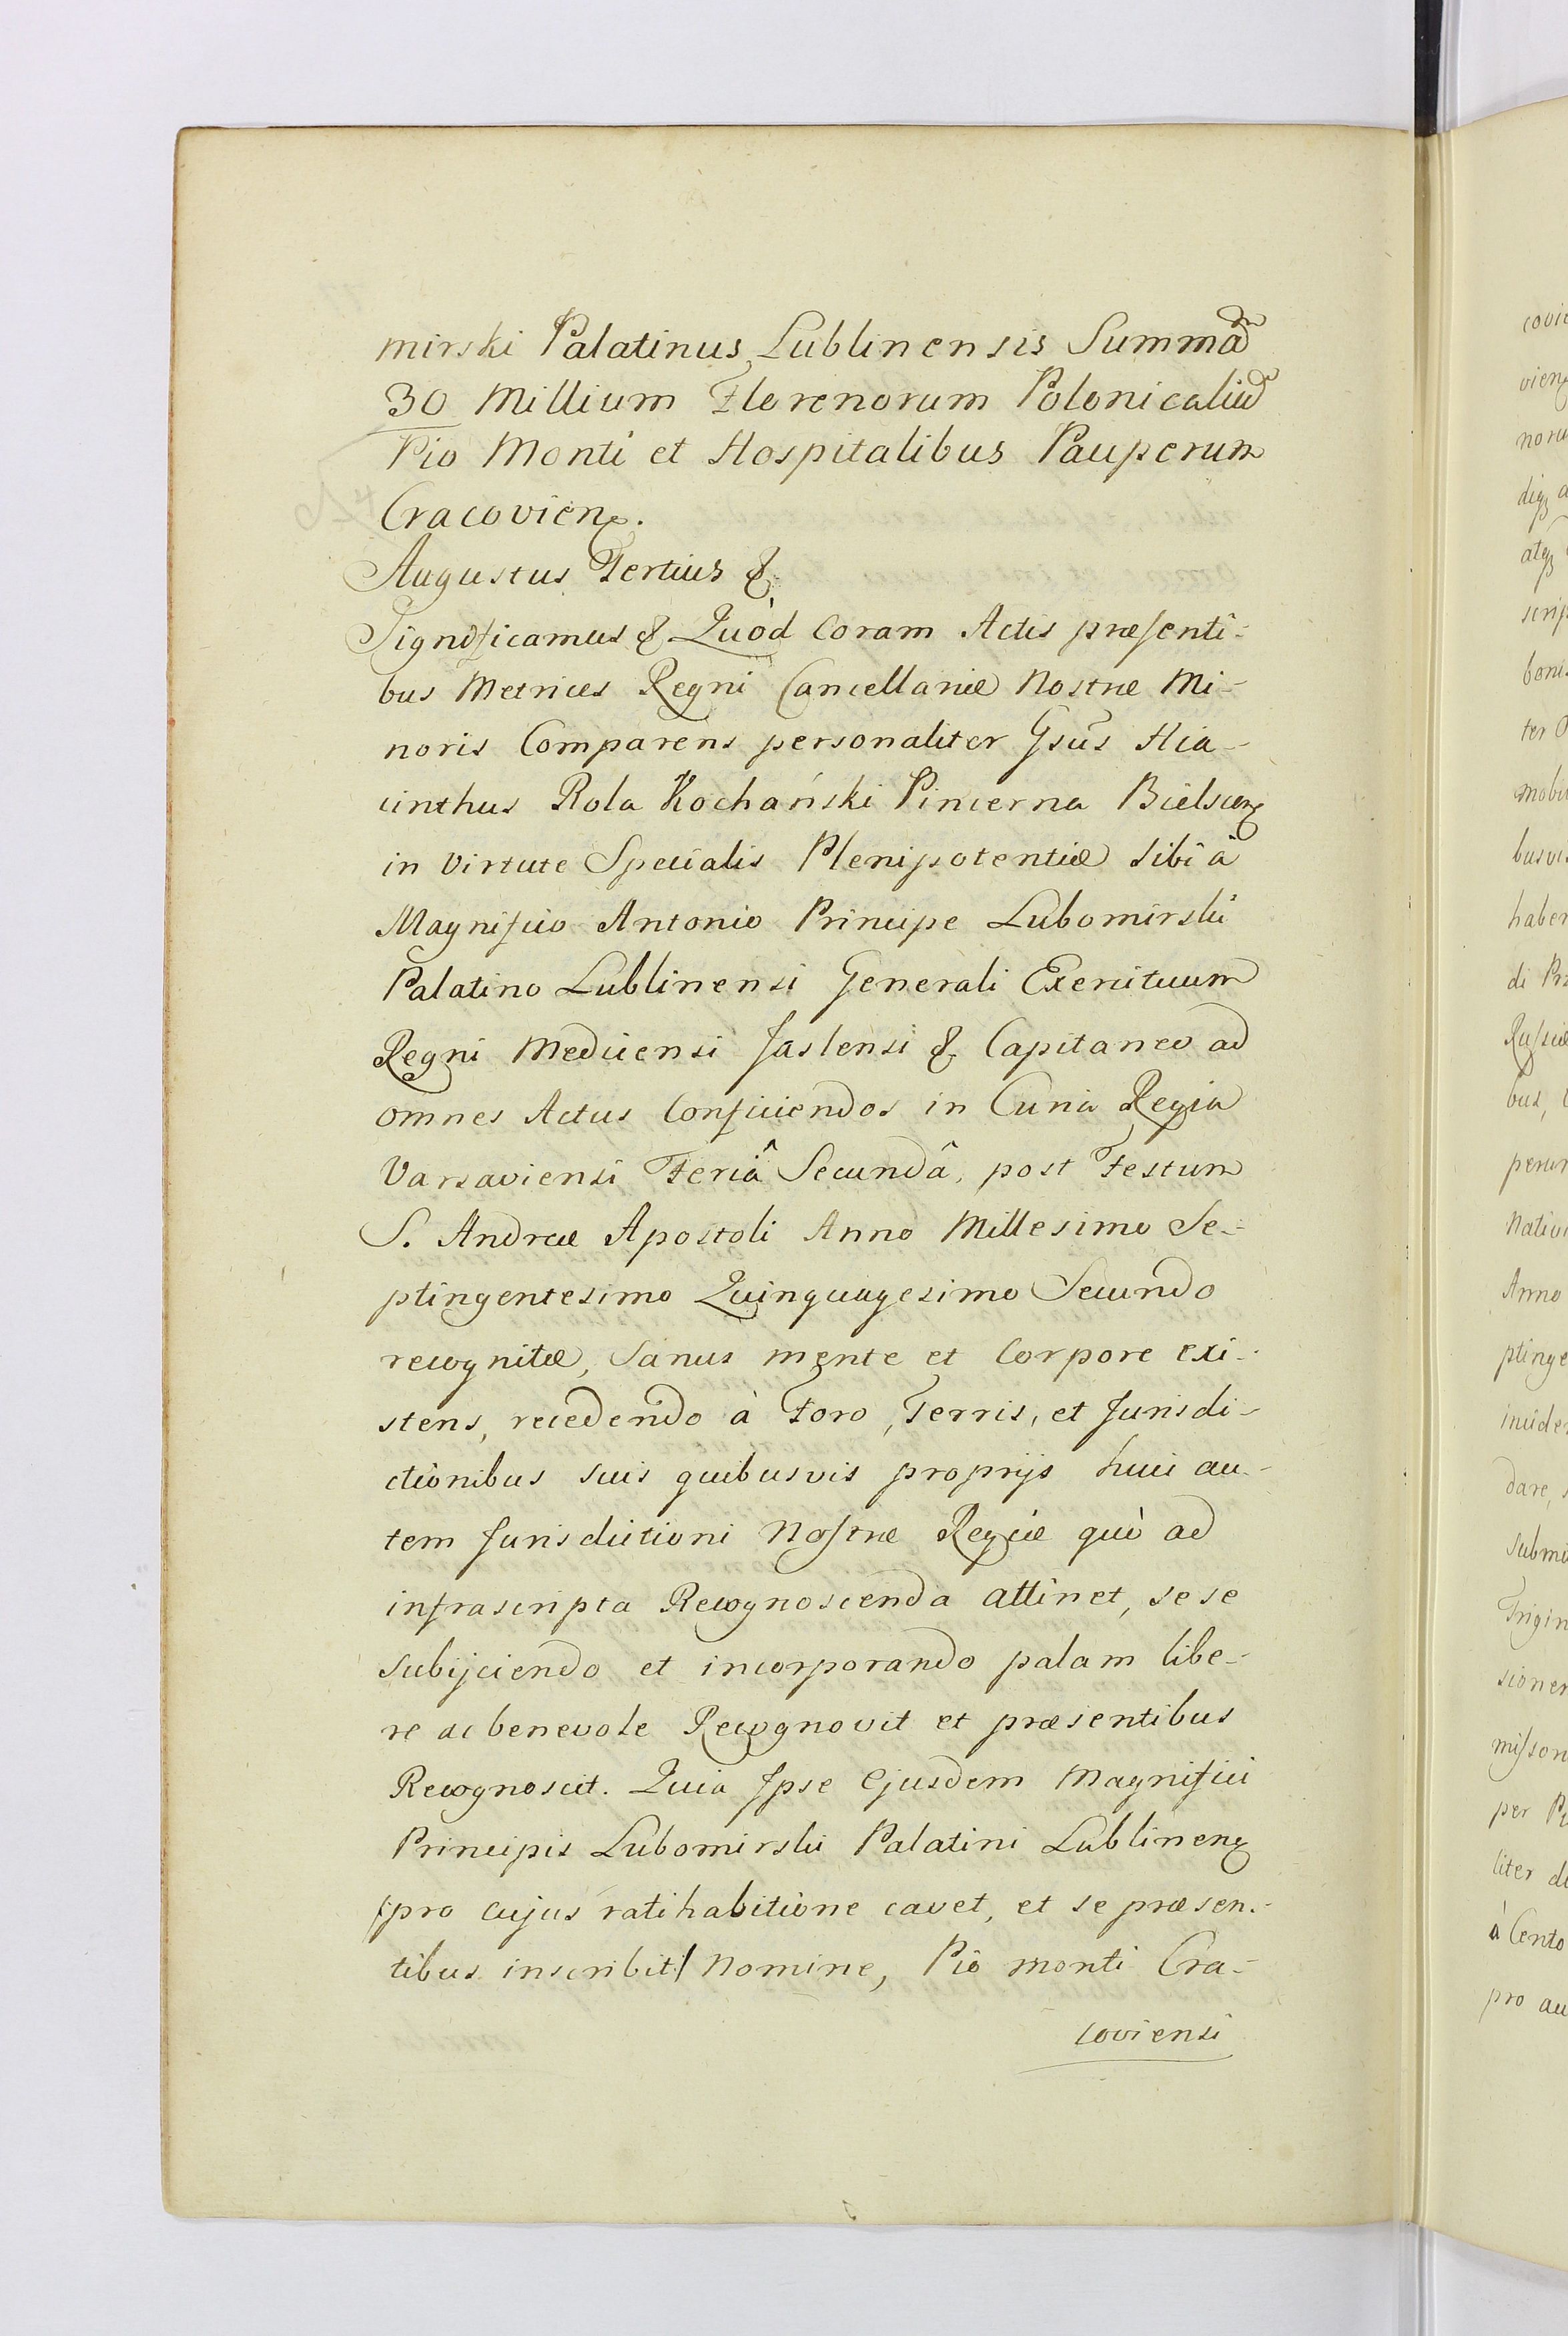 mirski Palatinus Lublinensis Summam̃
30 Millium Florenorum Polonicaliũ
Pio Monti et Hospitalibus Pauperum
Cracovien̄.
Augustus Tertius &.
Significamus & Quòd Coram Actis præsenti-
bus Metrices Regni Cancellariæ Nostræ Mi-
noris Comparens personaliter Gsūs Hia-
cinthus Rola Kochański Pincerna Bielscen̄
in Virtute Specialis Plenipotentiæ Sibi à
Magnifico Antonio Principe Lubomirski
Palatino Lublinensi Generali Exercituum
Regni Medicensi Jaslensi & Capitaneo ad
omnes Actus Conficiendos in Curia Regia
Varsaviensi Feriâ Secundâ, post Festum
S. Andreæ Apostoli Anno Millesimo Se-
ptingentesimo Quinquagesimo Secundo
recognitæ, Sanus mente et Corpore exi-
stens, recedendo à Foro, Terris, et Jurisdi-
ctionibus suis quibusvis proprijs huic au-
tem Jurisdictioni Nostræ Regiæ quò ad
infrascripta Recognoscenda attinet, se se
subijciendo et incorporando palam libe-
re ac benevole Recognovit et præsentibus
Recognoscit. Quia Ipse Ejusdem Magnifici
Principis Lubomirski Palatini Lublinen̄
/pro cujus ratihabitione cavet, et se præsen-
tibus inscribit/ Nomine, Pio monti Cra-
coviensi